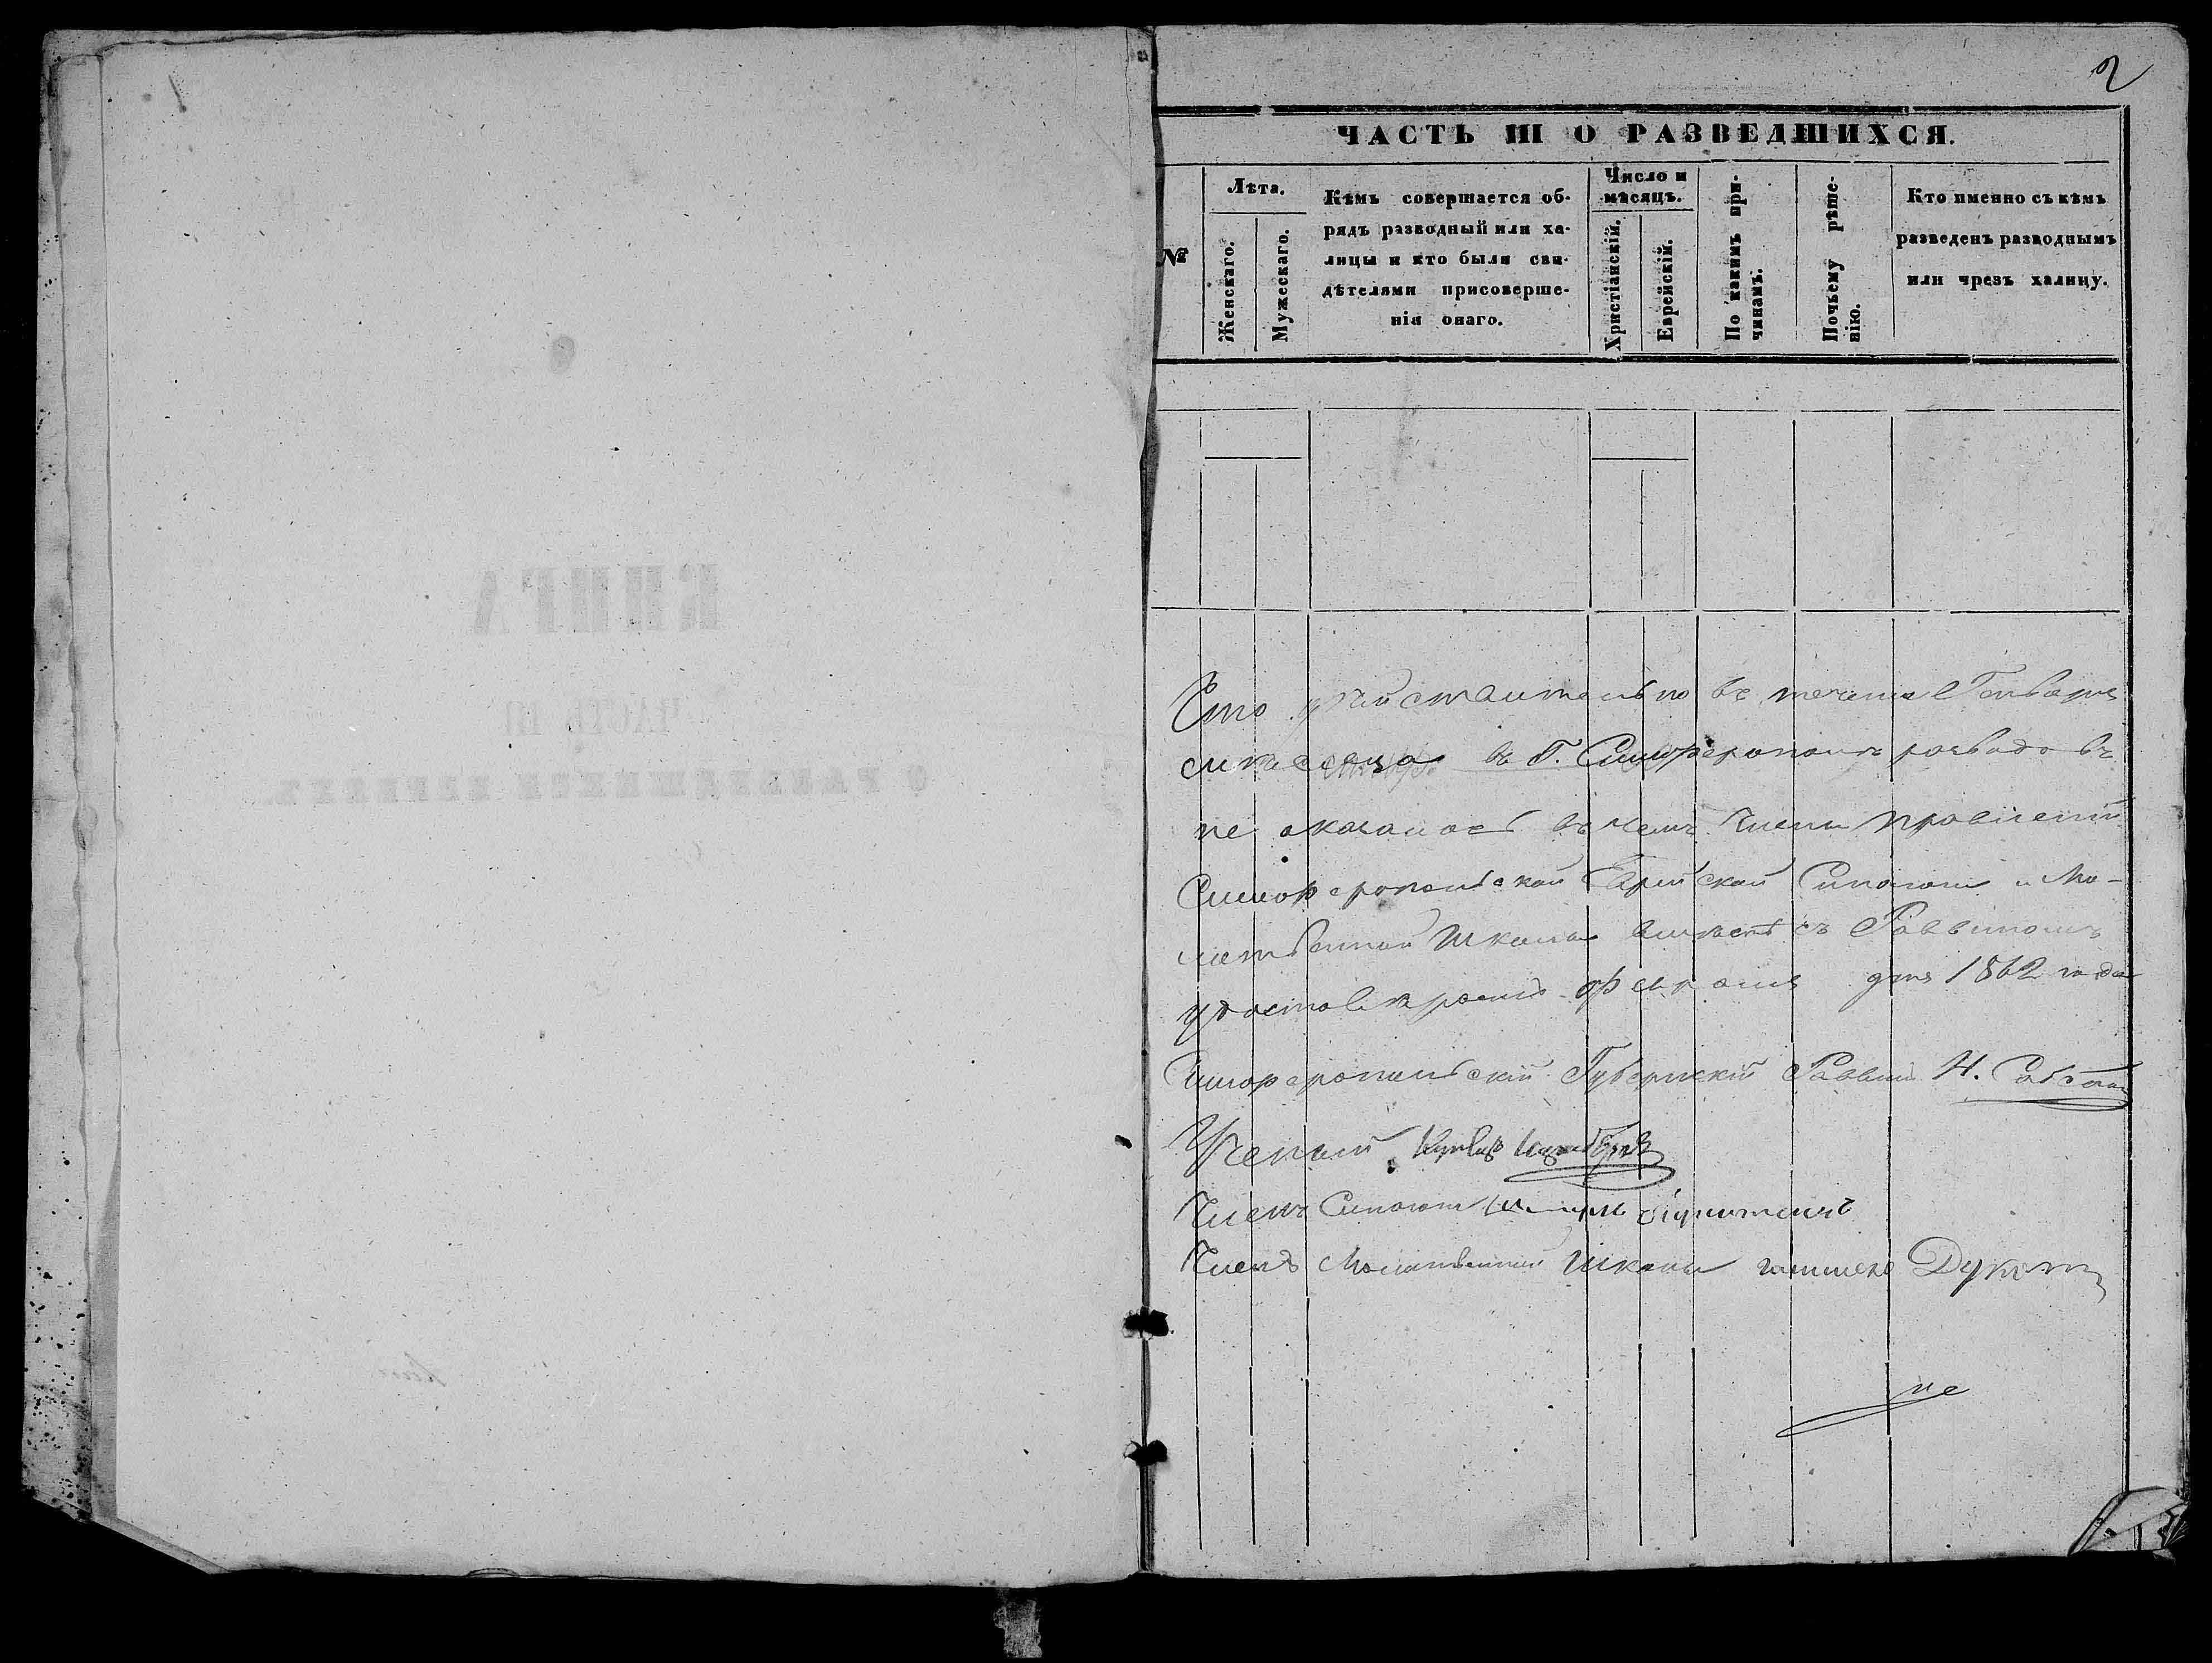 2
ЧАСТЬ III О РАЗВЕДШИХСЯ.
№
Лѣта.
Женскаго.
Мужескаго.
Кѣмъ совершается об-
рядъ разводный или ха-
лицы и кто были сви-
дѣтелями присоверше-
нія онаго.
Число и
мѣсяцъ.
Христіанскій.
Еврейскій.
По какимъ при-
чинамъ.
Почьему рѣше-
нію.
Кто именно съ кѣмъ
разведенъ разводнымъ
или чрезъ халицу.
Что дѣйствительно въ течении Генваря
месеца въ Г. Симферополѣ розводовъ
не оказалось въ чемъ Члены Правленій
Симферопольской Еврейской Синагоги и Мо-
литвенной Школы вместѣ съ Раввиномъ
удостовѣряемъ февраля дня 1862 года
Симферопольскій Губернскій Раввинъ Н.
Ученый
Членъ Синагоги
Членъ Молитвенной Школы Дукелт
не
КНИГА
ЧАСТЬ III
О РАЗВЕДШИХСЯ ЕВРЕЯХЪ.